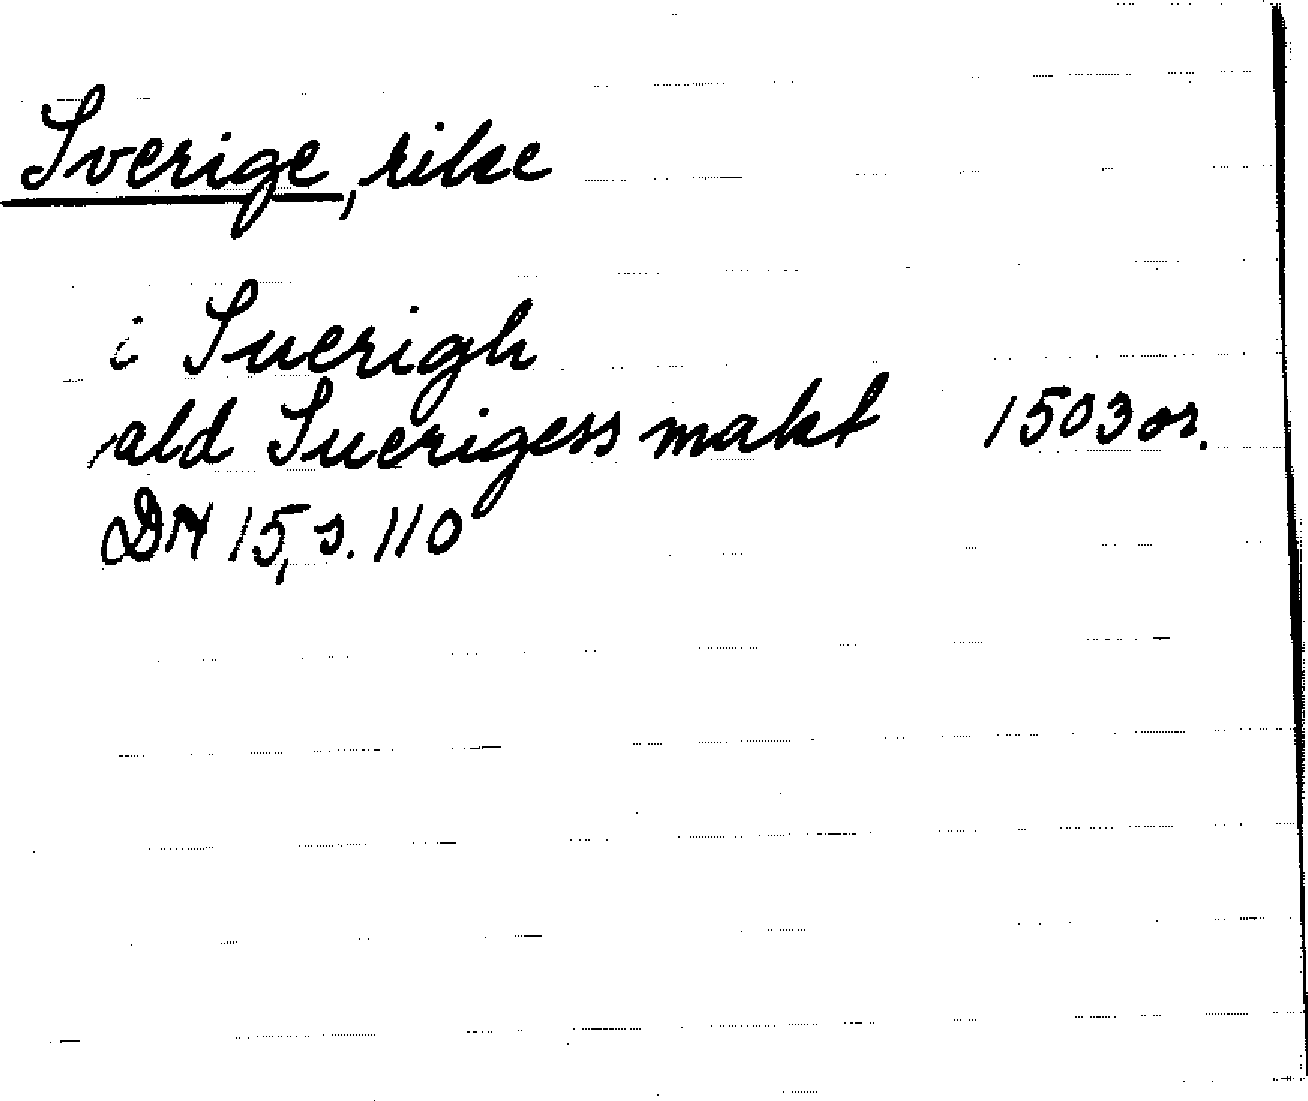 Sverige, rike
i Suerigh
ald Suerigess makt 1503 or.
DN 15, s. 110